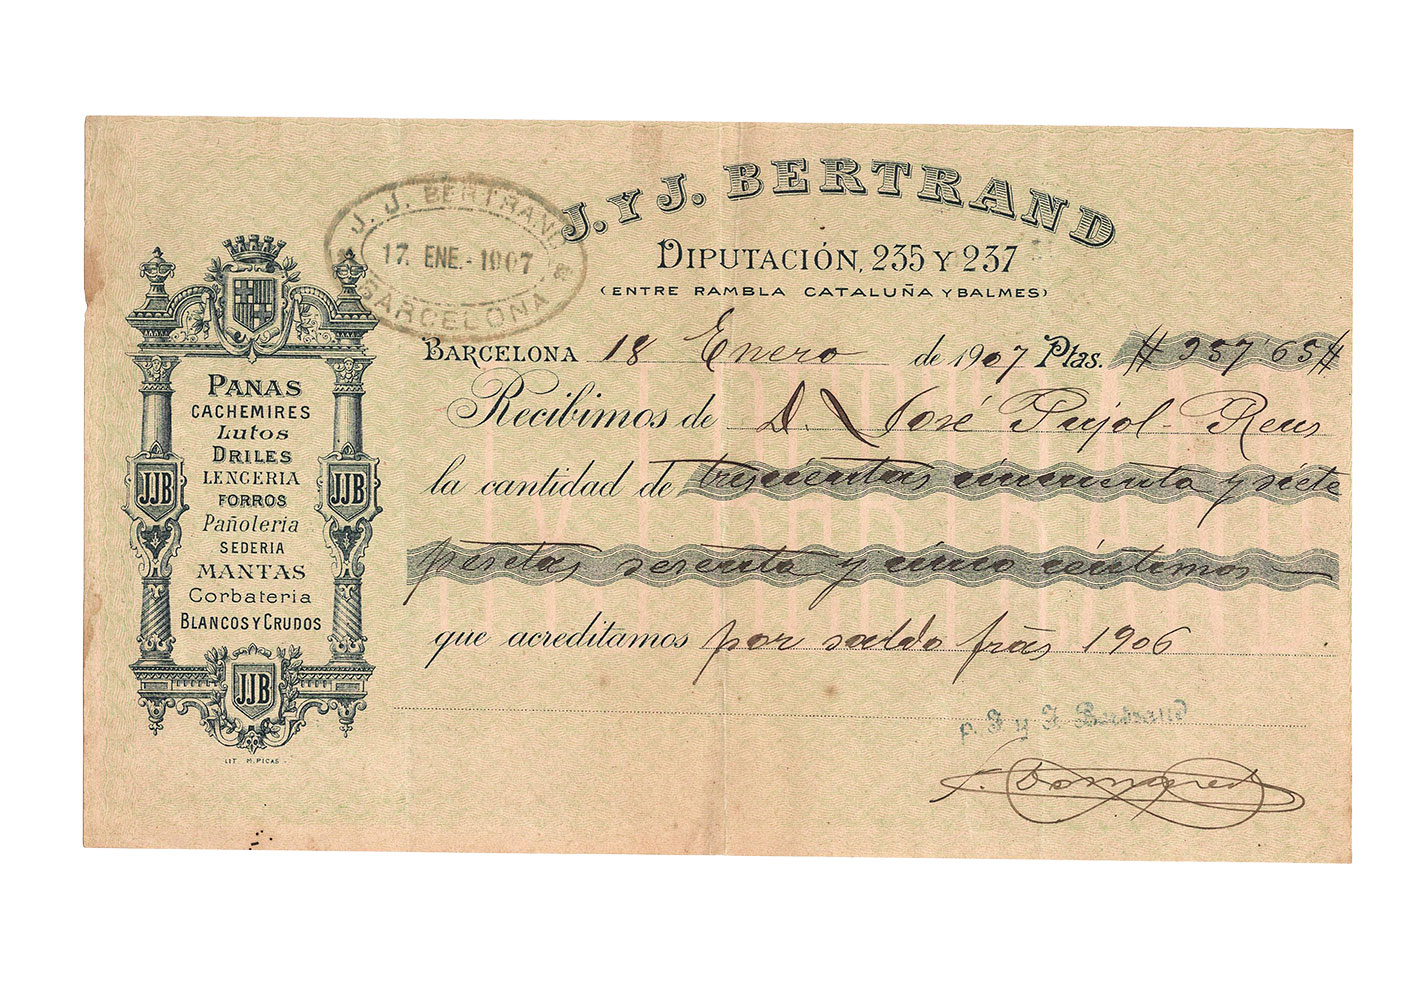 J. Y J. BERTRAND
DIPUTACIÓN, 235 Y 237
(ENTRE RAMBLA CATALUÑA Y BALMES)
J. J. BERTRAND
17. ENE.-1907
BARCELONA
BARCELONA 18 Enero de 1907 Ptas. # 357'65 #
Recibimos de D. José Pujol - Reus
la cantidad de trescientas cincuenta y siete
pesetas sesenta y cinco céntimos —
que acreditamos por saldo frās 1906
p. J y J. Bertrand
PANAS
CACHEMIRES
Lutos
DRILES
LENCERIA
FORROS
Pañoleria
SEDERIA
MANTAS
Corbateria
BLANCOS Y CRUDOS
JJB
JJB
JJB
LIT. M. PICAS.